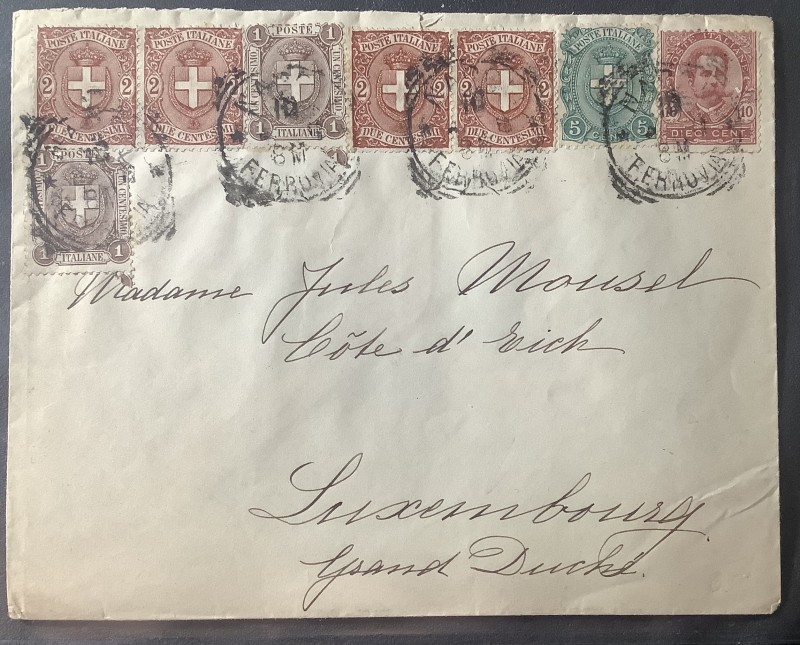 POSTE ITALIANE
2 2
DUE CENTESIMI
POSTE ITALIANE
2 2
DUE CENTESIMI
1 POSTE 1
UN CENTESIMO
1 ITALIANE 1
POSTE ITALIANE
2 2
DUE CENTESIMI
POSTE ITALIANE
2 2
DUE CENTESIMI
POSTE ITALIANE
5 CENT. 5
POSTE ITALIANE
10 10
DIECI CENT.
1 POSTE 1
UN CENTESIMO
1 ITALIANE 1
10
8 M
FERROVIA
10
8 M
FERROVIA
10
8 M
FERROVIA
Madame Jules Mousel
Côte d'Eich
Luxembourg
Grand Duché.